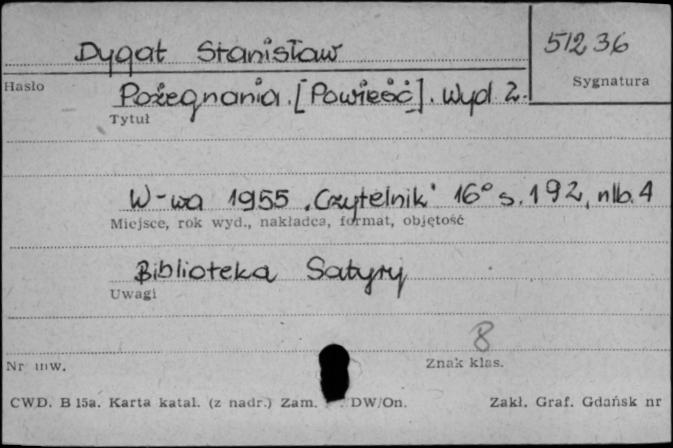 Dygat Stanisław
51236
Hasło
Sygnatura
Pożegnania. [Powieść]. Wyd 2.
Tytuł
W-wa 1955 "Czytelnik" 16° s. 192, nlb. 4
Miejsce, rok wyd., nakładca, format, objętość
Biblioteka Satyry
Uwagi
8
Nr inw.
Znak klas.
CWD. B 15a. Karta katal. (z nadr.) Zam. DW/On.
Zakł. Graf. Gdańsk nr